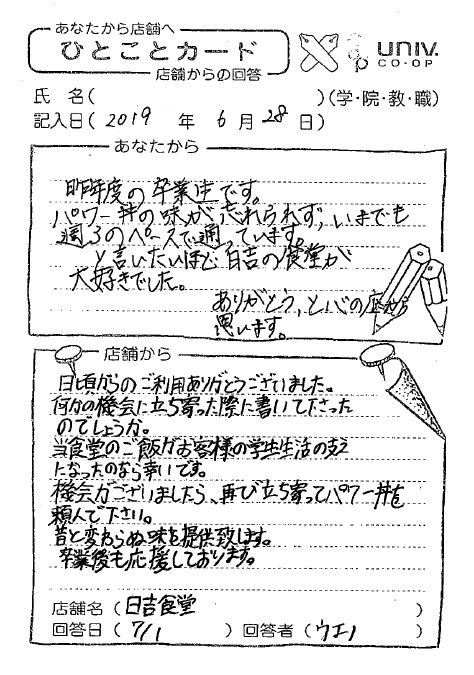 あなたから店舗へ
ひとことカード
店舗からの回答
UNIV.
CO-OP
氏 名( )(学・院・教・職)
記入日( 2019 年 6 月 28 日)
あなたから
昨年度の卒業生です。
パワー丼の味が忘れられず、いまでも
週3のペースで通っています。
と言いたいほど日吉の食堂が
大好きでした。
ありがとう、と心の底から
思います。
店舗から
日頃からのご利用ありがとうございました。
何かの機会に立ち寄った際に書いて下さった
のでしょうか。
当食堂のご飯がお客様の学生生活の支え
になったのなら幸いです。
機会がございましたら、再び立ち寄ってパワー丼を
頼んで下さい。
昔と変わらぬ味を提供致します。
卒業後も応援しております。
店舗名(日吉食堂 )
回答日( 7/1 )回答者(ウエノ )